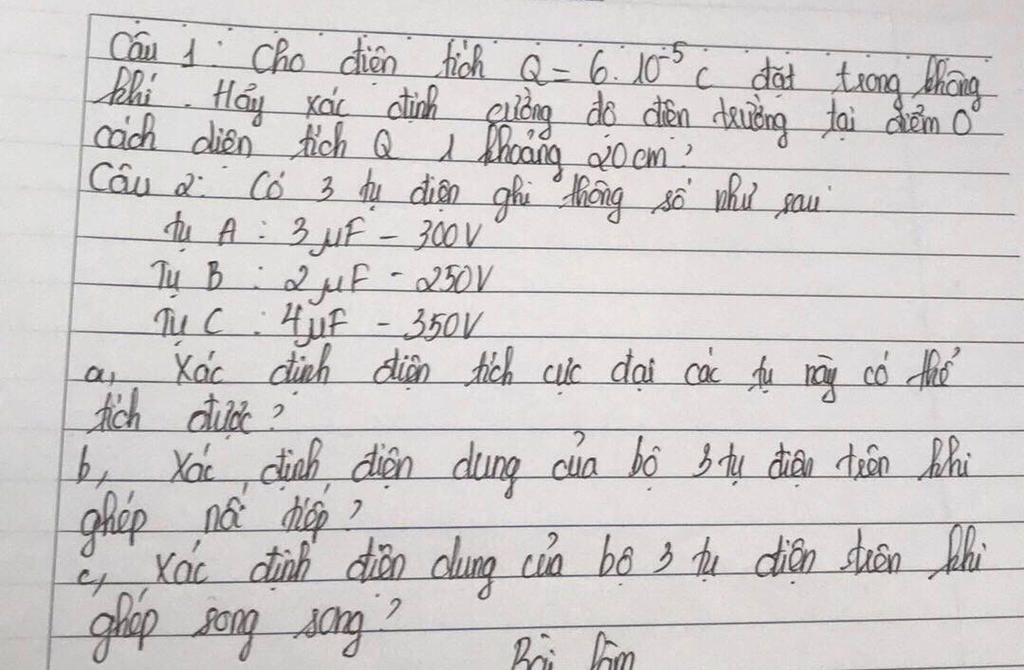 Câu 1: Cho điện tích Q = 6.10⁻⁵ C đặt trong không
khí. Hãy xác định cường độ điện trường tại điểm O
cách điện tích Q 1 khoảng 20cm?
Câu 2: Có 3 tụ điện ghi thông số như sau:
Tụ A : 3 μF - 300V
Tụ B : 2 μF - 250V
Tụ C : 4μF - 350V
a, Xác định điện tích cực đại các tụ này có thể
tích được?
b, Xác định điện dung của bộ 3 tụ điện trên khi
ghép nối tiếp?
c, Xác định điện dung của bộ 3 tụ điện trên khi
ghép song song?
Bài làm